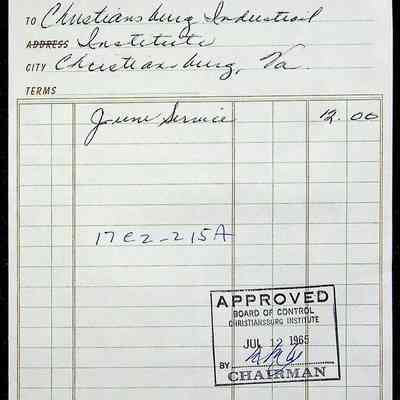 TO Christiansburg Industrial
ADDRESS Institute
CITY Christiansburg, Va.
TERMS
June Service 12.00
17E2-215A
APPROVED
BOARD OF CONTROL
CHRISTIANSBURG INSTITUTE
JUL 12 1965
BY
CHAIRMAN